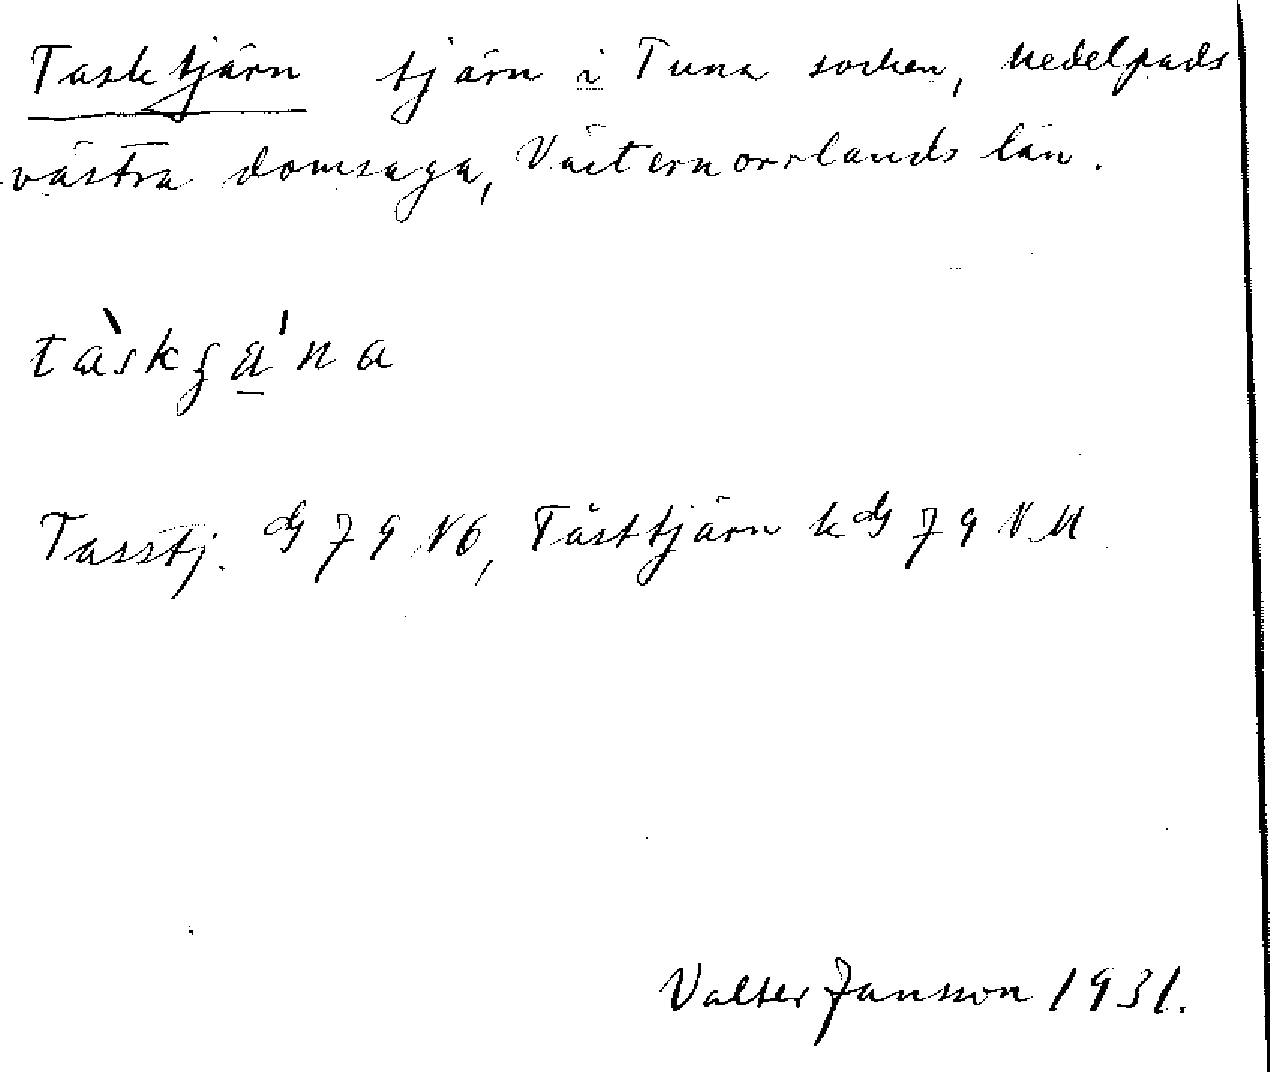 Tasktjärn tjärn i Tuna socken, Medelpads
västra domsaga, Västernorrlands län.
tàskʒa̲'na
Tasstj. G 79 NÖ, Tåsttjärn k G 79 NV.
Valter Jansson 1931.